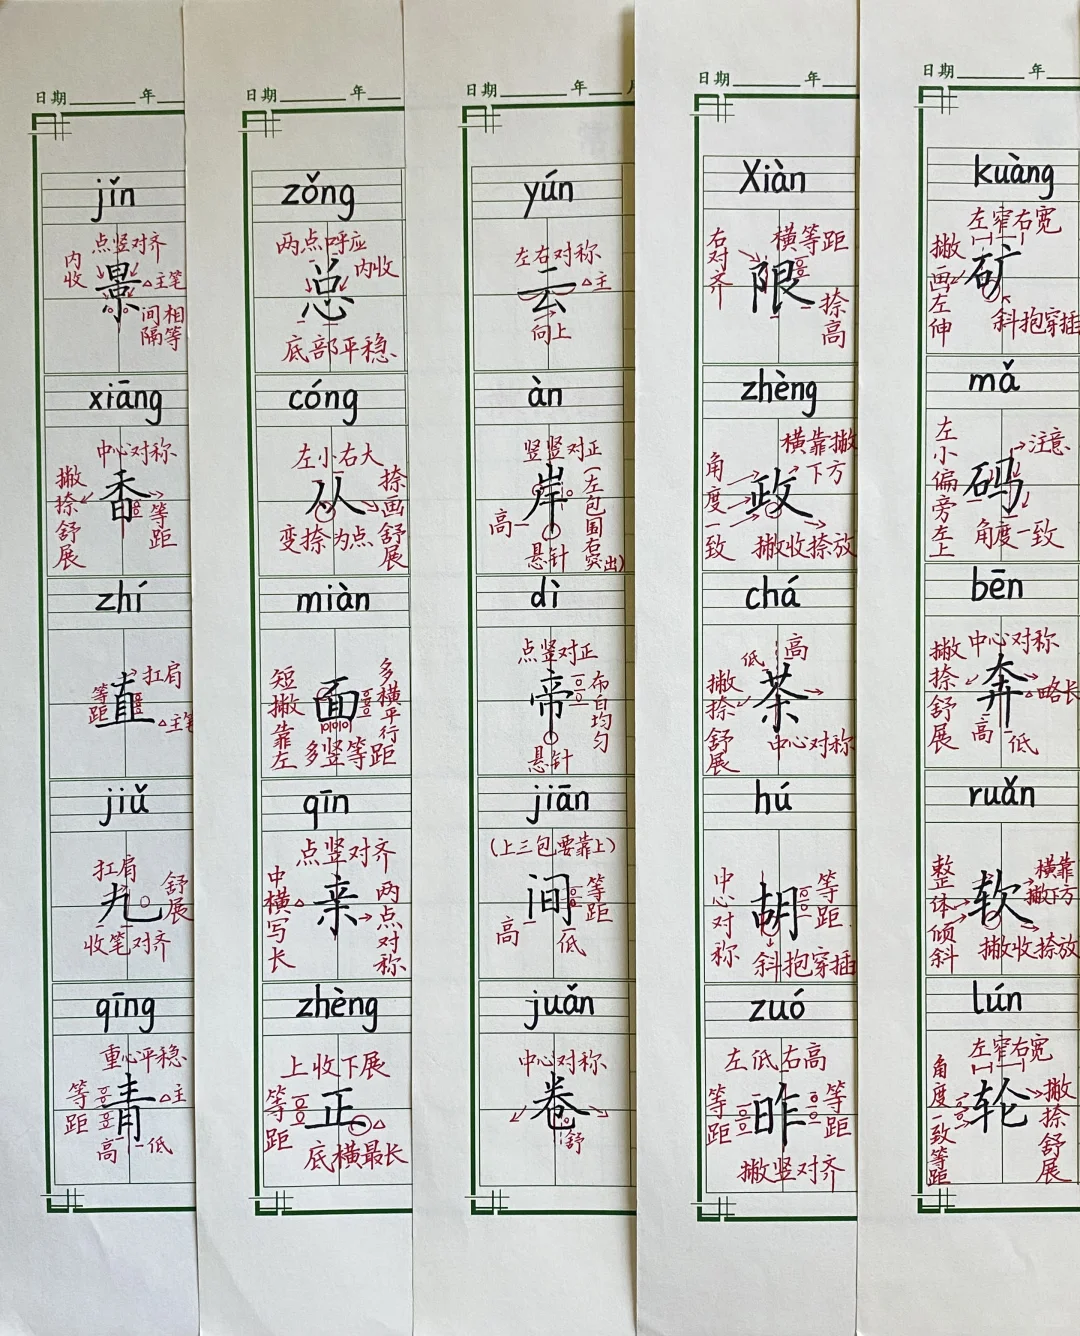 日期 年
jǐn
点竖对齐
内收
景
△主笔
间隔相等
xiāng
中心对称
撇捺舒展
香
等距
zhí
扛肩
等距
直
△主笔
jiǔ
扛肩
丸
舒展
收笔对齐
qīng
重心平稳
等距
青
△主
高 低
日期 年
zǒng
两点呼应
内收
总
底部平稳
cóng
左小右大
从
捺画舒展
变捺为点
miàn
短撇靠左
面
多横平行
多竖等距
qīn
点竖对齐
中横写长
亲
两点对称
zhèng
上收下展
等距
正
底横最长
日期 年 月
yún
左右对称
云
△主
向上
àn
竖竖对正
岸
(左包围右突出)
高
悬针
dì
点竖对正
帝
布白均匀
悬针
jiān
(上三包要靠上)
间
等距
高 低
juǎn
中心对称
卷
舒
日期 年
Xiàn
右对齐
横等距
限
捺高
zhèng
横靠撇下方
角度一致
政
撇收捺放
chá
低 高
撇捺舒展
茶
中心对称
hú
中心对称
胡
等距
斜抱穿插
zuó
左低右高
等距
昨
等距
撇竖对齐
日期 年
kuàng
左窄右宽
撇画左伸
矿
斜抱穿插
mǎ
左小偏旁左上
注意
码
角度一致
bēn
中心对称
撇捺舒展
奔
略长
高 低
ruǎn
整体倾斜
软
横靠撇下方
撇收捺放
lún
左窄右宽
角度一致等距
轮
撇捺舒展